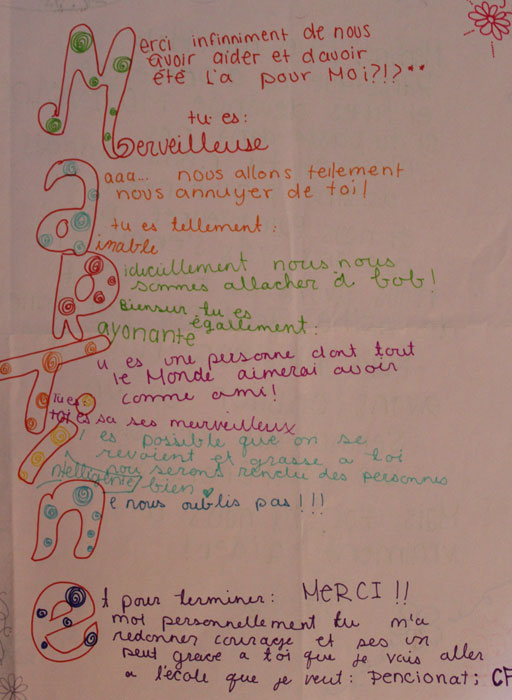 Merci infinniment de nous
avoir aider et d'avoir
été là pour Moi?!?**
tu es:
Merveilleuse
aaaa... nous allons tellement
nous annuyer de toi!
tu es tellement:
aimable
Ridiculllement nous nous
sommes attacher à bob!
Biensur tu es
égallement:
Rayonante
Tu es une personne dont tout
le Monde aimerai avoir
comme ami!
Tu es:
toi es sa ses merveilleux
I es possible que on se
revoient et grasse a toi
nou serons rendu des personnes
intelligente bien
ne nous oublis pas!!!
et pour terminer: MERCI!!
moi personnellement tu m'a
redonner courage et ses un
peut grace a toi que je vais aller
a l'école que je veut: pencionat; CF